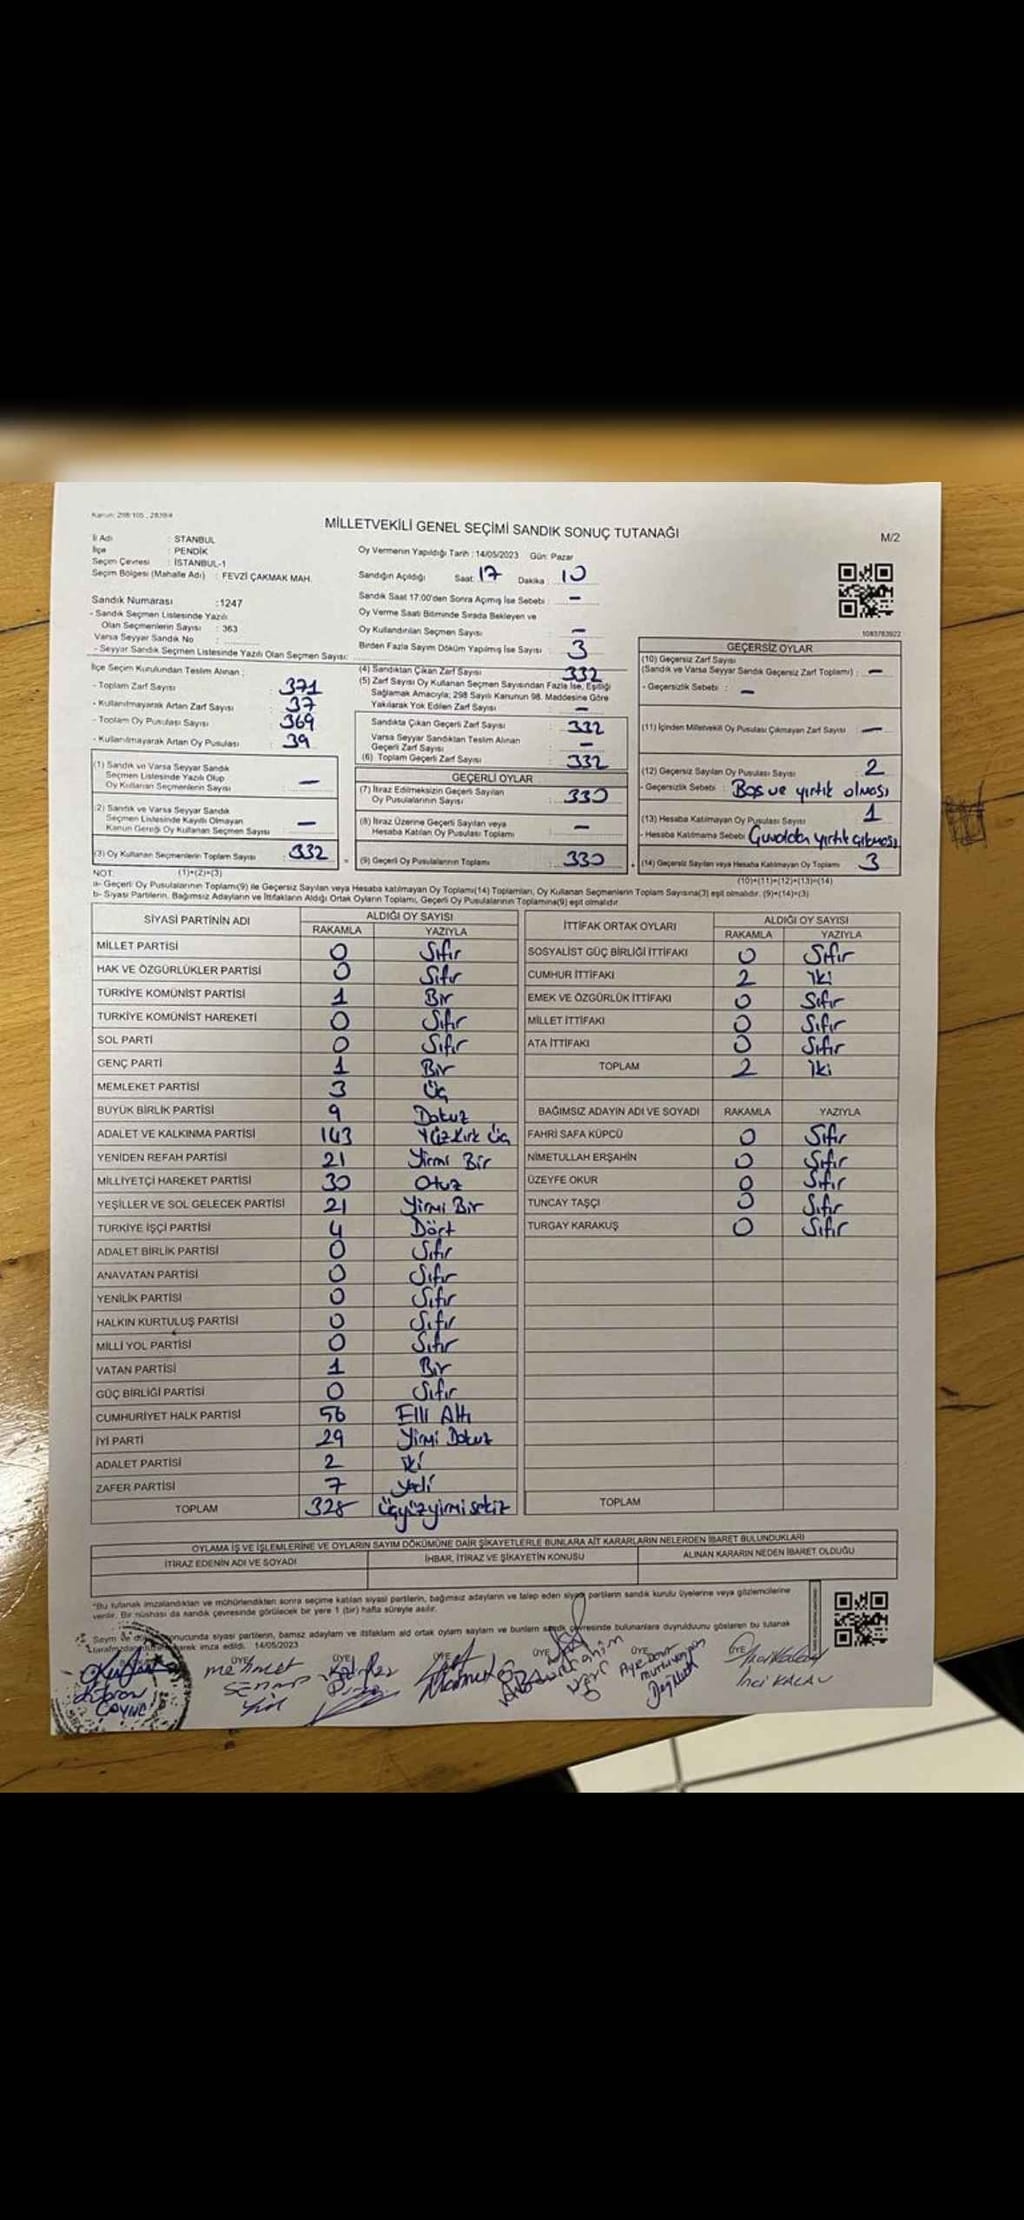 Kanun: 298/105 , 2839/4
MİLLETVEKİLİ GENEL SEÇİMİ SANDIK SONUÇ TUTANAĞI
M/2
İl Adı : STANBUL
İlçe : PENDİK
Seçim Çevresi : İSTANBUL-1
Seçim Bölgesi (Mahalle Adı) : FEVZİ ÇAKMAK MAH.
Sandık Numarası :1247
- Sandık Seçmen Listesinde Yazılı
Olan Seçmenlerin Sayısı : 363
Varsa Seyyar Sandık No :
- Seyyar Sandık Seçmen Listesinde Yazılı Olan Seçmen Sayısı:
Oy Vermenin Yapıldığı Tarih : 14/05/2023 Gün: Pazar
Sandığın Açıldığı Saat: 17 Dakika : 10
Sandık Saat 17:00'den Sonra Açımış İse Sebebi : -
Oy Verme Saati Bitiminde Sırada Bekleyen ve
Oy Kullandırılan Seçmen Sayısı : -
Birden Fazla Sayım Döküm Yapılmış İse Sayısı : 3
1083783922
İlçe Seçim Kurulundan Teslim Alınan ;
- Toplam Zarf Sayısı : 371
- Kullanılmayarak Artan Zarf Sayısı : 37
- Toplam Oy Pusulası Sayısı : 369
- Kullanılmayarak Artan Oy Pusulası : 39
(1) Sandık ve Varsa Seyyar Sandık
Seçmen Listesinde Yazılı Olup
Oy Kullanan Seçmenlerin Sayısı : -
(2) Sandık ve Varsa Seyyar Sandık
Seçmen Listesinde Kayıtlı Olmayan
Kanun Gereği Oy Kullanan Seçmen Sayısı : -
(3) Oy Kullanan Seçmenlerin Toplam Sayısı : 332
(1)+(2)=(3)
(4) Sandıktan Çıkan Zarf Sayısı : 332
(5) Zarf Sayısı Oy Kullanan Seçmen Sayısından Fazla İse, Eşitliği
Sağlamak Amacıyla; 298 Sayılı Kanunun 98. Maddesine Göre
Yakılarak Yok Edilen Zarf Sayısı : -
Sandıkta Çıkan Geçerli Zarf Sayısı : 332
Varsa Seyyar Sandıktan Teslim Alınan
Geçerli Zarf Sayısı : -
(6) Toplam Geçerli Zarf Sayısı : 332
GEÇERLİ OYLAR
(7) İtiraz Edilmeksizin Geçerli Sayılan
Oy Pusulalarının Sayısı : 330
(8) İtiraz Üzerine Geçerli Sayılan veya
Hesaba Katılan Oy Pusulası Toplamı : -
(9) Geçerli Oy Pusulalarının Toplamı : 330
GEÇERSİZ OYLAR
(10) Geçersiz Zarf Sayısı
(Sandık ve Varsa Seyyar Sandık Geçersiz Zarf Toplamı) : -
- Geçersizlik Sebebi : -
(11) İçinden Milletvekili Oy Pusulası Çıkmayan Zarf Sayısı : -
(12) Geçersiz Sayılan Oy Pusulası Sayısı : 2
- Geçersizlik Sebebi : Boş ve yırtık olması
(13) Hesaba Katılmayan Oy Pusulası Sayısı : 1
- Hesaba Katılmama Sebebi : yırtık çıkması
(14) Geçersiz Sayılan veya Hesaba Katılmayan Oy Toplamı : 3
(10)+(11)+(12)+(13)=(14)
NOT:
a- Geçerli Oy Pusulalarının Toplamı(9) ile Geçersiz Sayılan veya Hesaba katılmayan Oy Toplamı(14) Toplamları, Oy Kullanan Seçmenlerin Toplam Sayısına(3) eşit olmalıdır. (9)+(14)=(3)
b- Siyasi Partilerin, Bağımsız Adayların ve İttifakların Aldığı Ortak Oyların Toplamı, Geçerli Oy Pusulalarının Toplamına(9) eşit olmalıdır
SİYASİ PARTİNİN ADI ALDIĞI OY SAYISI
RAKAMLA YAZIYLA
MİLLET PARTİSİ 0 Sıfır
HAK VE ÖZGÜRLÜKLER PARTİSİ 0 Sıfır
TÜRKİYE KOMÜNİST PARTİSİ 1 Bir
TÜRKİYE KOMÜNİST HAREKETİ 0 Sıfır
SOL PARTİ 0 Sıfır
GENÇ PARTİ 1 Bir
MEMLEKET PARTİSİ 3 Üç
BÜYÜK BİRLİK PARTİSİ 9 Dokuz
ADALET VE KALKINMA PARTİSİ 143 Yüzkırk Üç
YENİDEN REFAH PARTİSİ 21 Yirmi Bir
MİLLİYETÇİ HAREKET PARTİSİ 30 Otuz
YEŞİLLER VE SOL GELECEK PARTİSİ 21 Yirmi Bir
TÜRKİYE İŞÇİ PARTİSİ 4 Dört
ADALET BİRLİK PARTİSİ 0 Sıfır
ANAVATAN PARTİSİ 0 Sıfır
YENİLİK PARTİSİ 0 Sıfır
HALKIN KURTULUŞ PARTİSİ 0 Sıfır
MİLLİ YOL PARTİSİ 0 Sıfır
VATAN PARTİSİ 1 Bir
GÜÇ BİRLİĞİ PARTİSİ 0 Sıfır
CUMHURİYET HALK PARTİSİ 56 Elli Altı
İYİ PARTİ 29 Yirmi Dokuz
ADALET PARTİSİ 2 iki
ZAFER PARTİSİ 7 yedi
TOPLAM 328 üçyüzyirmisekiz
İTTİFAK ORTAK OYLARI ALDIĞI OY SAYISI
RAKAMLA YAZIYLA
SOSYALİST GÜÇ BİRLİĞİ İTTİFAKI 0 Sıfır
CUMHUR İTTİFAKI 2 İki
EMEK VE ÖZGÜRLÜK İTTİFAKI 0 Sıfır
MİLLET İTTİFAKI 0 Sıfır
ATA İTTİFAKI 0 Sıfır
TOPLAM 2 İki
BAĞIMSIZ ADAYIN ADI VE SOYADI RAKAMLA YAZIYLA
FAHRİ SAFA KÜPCÜ 0 Sıfır
NİMETULLAH ERŞAHİN 0 Sıfır
ÜZEYFE OKUR 0 Sıfır
TUNCAY TAŞÇI 0 Sıfır
TURGAY KARAKUŞ 0 Sıfır
TOPLAM
OYLAMA İŞ VE İŞLEMLERİNE VE OYLARIN SAYIM DÖKÜMÜNE DAİR ŞİKAYETLERLE BUNLARA AİT KARARLARIN NELERDEN İBARET BULUNDUKLARI
İTİRAZ EDENİN ADI VE SOYADI İHBAR, İTİRAZ VE ŞİKAYETİN KONUSU ALINAN KARARIN NEDEN İBARET OLDUĞU
"Bu tutanak imzalandıktan ve mühürlendikten sonra seçime katılan siyasi partilerin, bağımsız adayların ve talep eden siyasi partilerin sandık kurulu üyelerine veya gözlemcilerine
verilir. Bir nüshası da sandık çevresinde görülecek bir yere 1 (bir) hafta süreyle asılır.
Sayım ve onucunda siyasi partilerin, bamsz adayların ve ittifakların ald ortak oyların saylarn ve bunların sandk çevresinde bulunanlara duyurulduunu gösteren bu tutanak
imza edildi. 14/05/2023
ÜYE ÜYE ÜYE ÜYE
mehmet
İnci KALAV